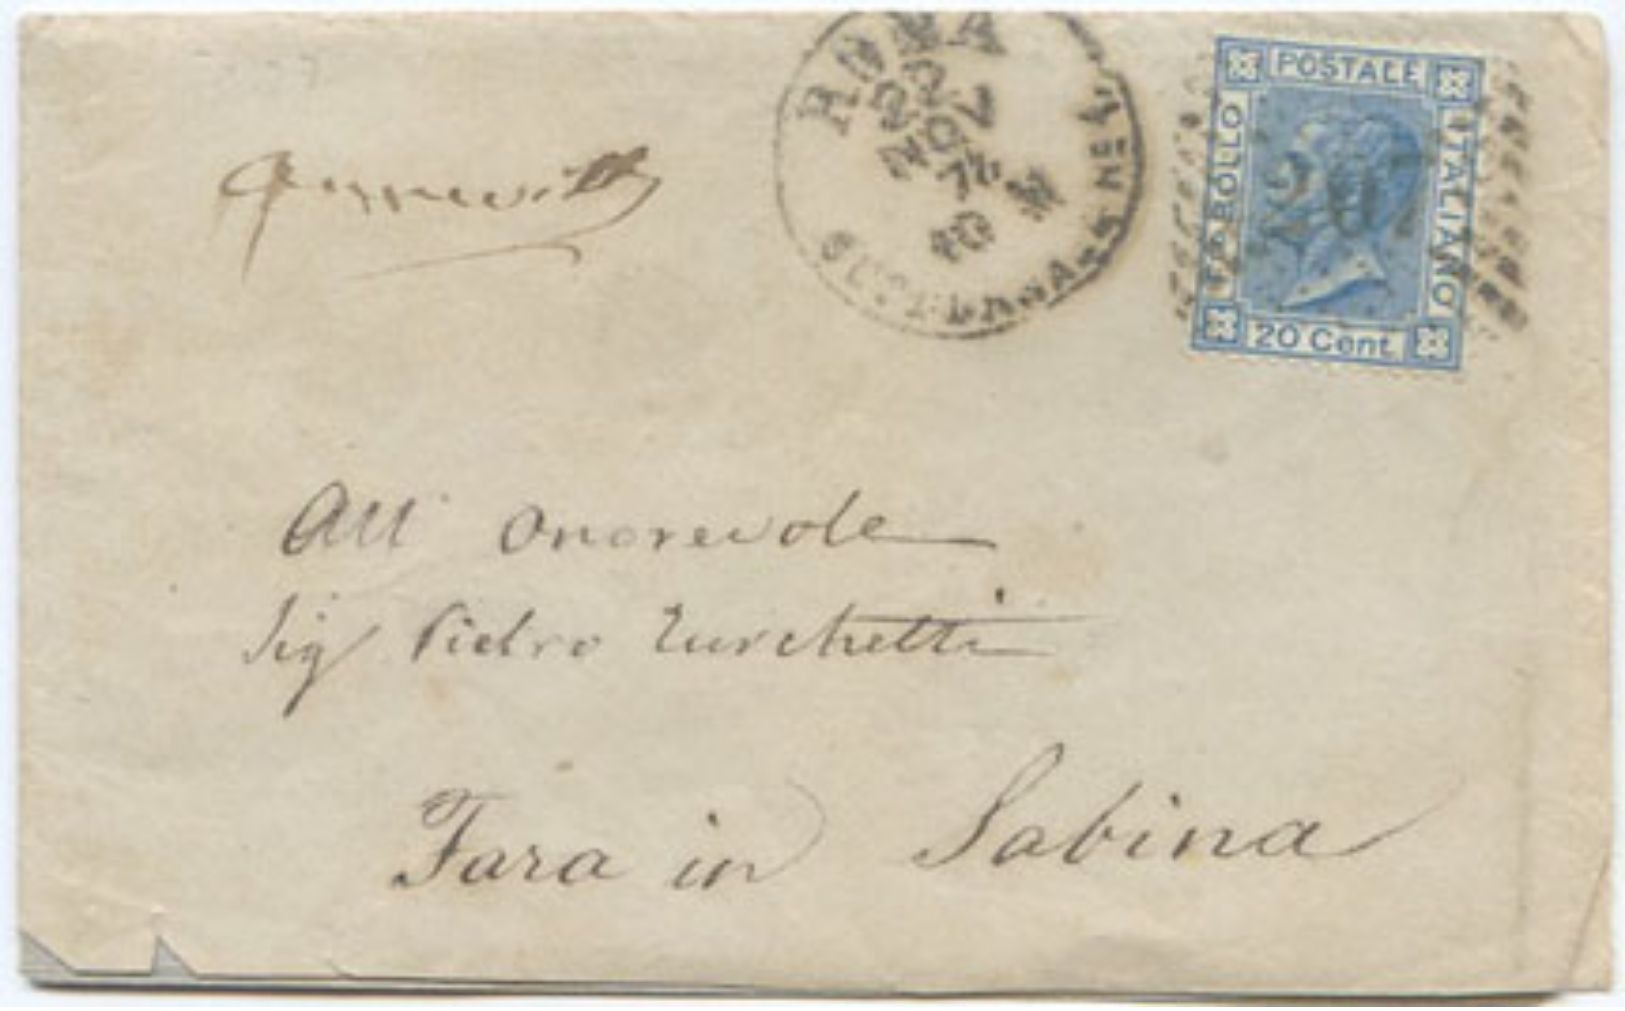 ROMA
22
NOV
74
10 M
POSTALE
FR.BOLLO
ITALIANO
207
20 Cent.
All' Onorevole
Sig Pietro Turchetti
Fara in Sabina